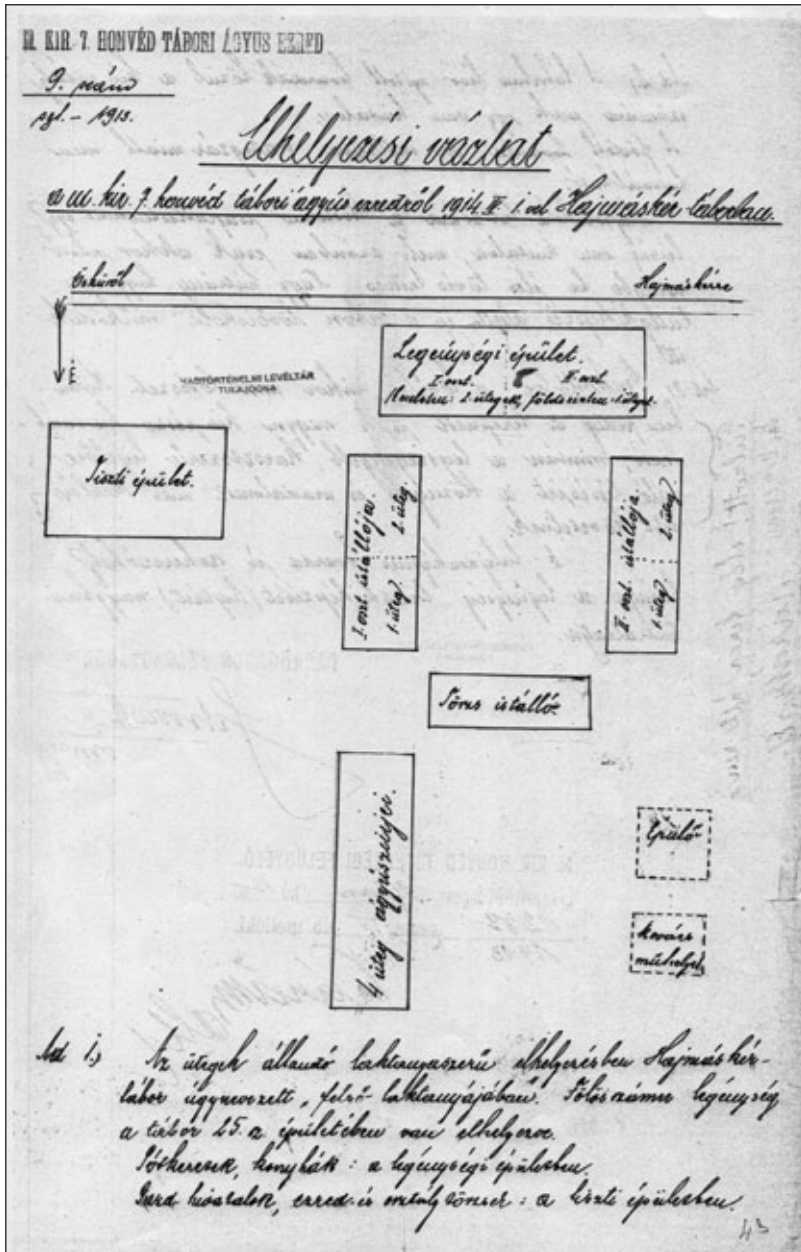 M. KIR. 7. HONVÉD TÁBORI ÁGYUS EZRED
9. szám
szl. - 1913.
Elhelyezési vázlat
a m. kir. 7. honvéd tábori ágyús ezredről 1914 IV. 1. vel Hajmáskér táborban.
Hajmáskérre
É
HADTÖRTÉNELMI LEVÉLTÁR
TULAJDONA
Legénységi épület.
I. oszt. II. oszt.
Emeleten: 2. ütegek, földszinten 1. üteg.
Tiszti épület.
I. oszt. istállója.
1. üteg. 2. üteg.
II. oszt. istállója.
1. üteg. 2. üteg.
Törzs istálló.
4 üteg ágyúszínjei.
Épülő
kovács
műhelyek
Ad 1.) Az ütegek állandó laktanyaszerű elhelyezésben Hajmáskér-
tábor úgynevezett „felső laktanyájában". legénység
a tábor 25. a épületében van elhelyezve.
konyhák: a legénységi épületben.
Ezred hivatalok, ezred- és osztálytörzsek: a tiszti épületben.
43